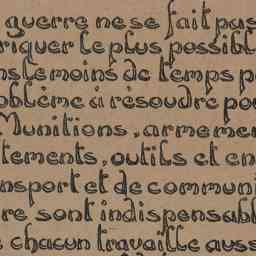 guerre ne se fait pas
riquer le plus possibl
ns le moins de temps p
oblème à résoudre po
Munitions, armeme
tements, outils et en
nsport et de communi
re sont indispensabl
e chacun travaille auss